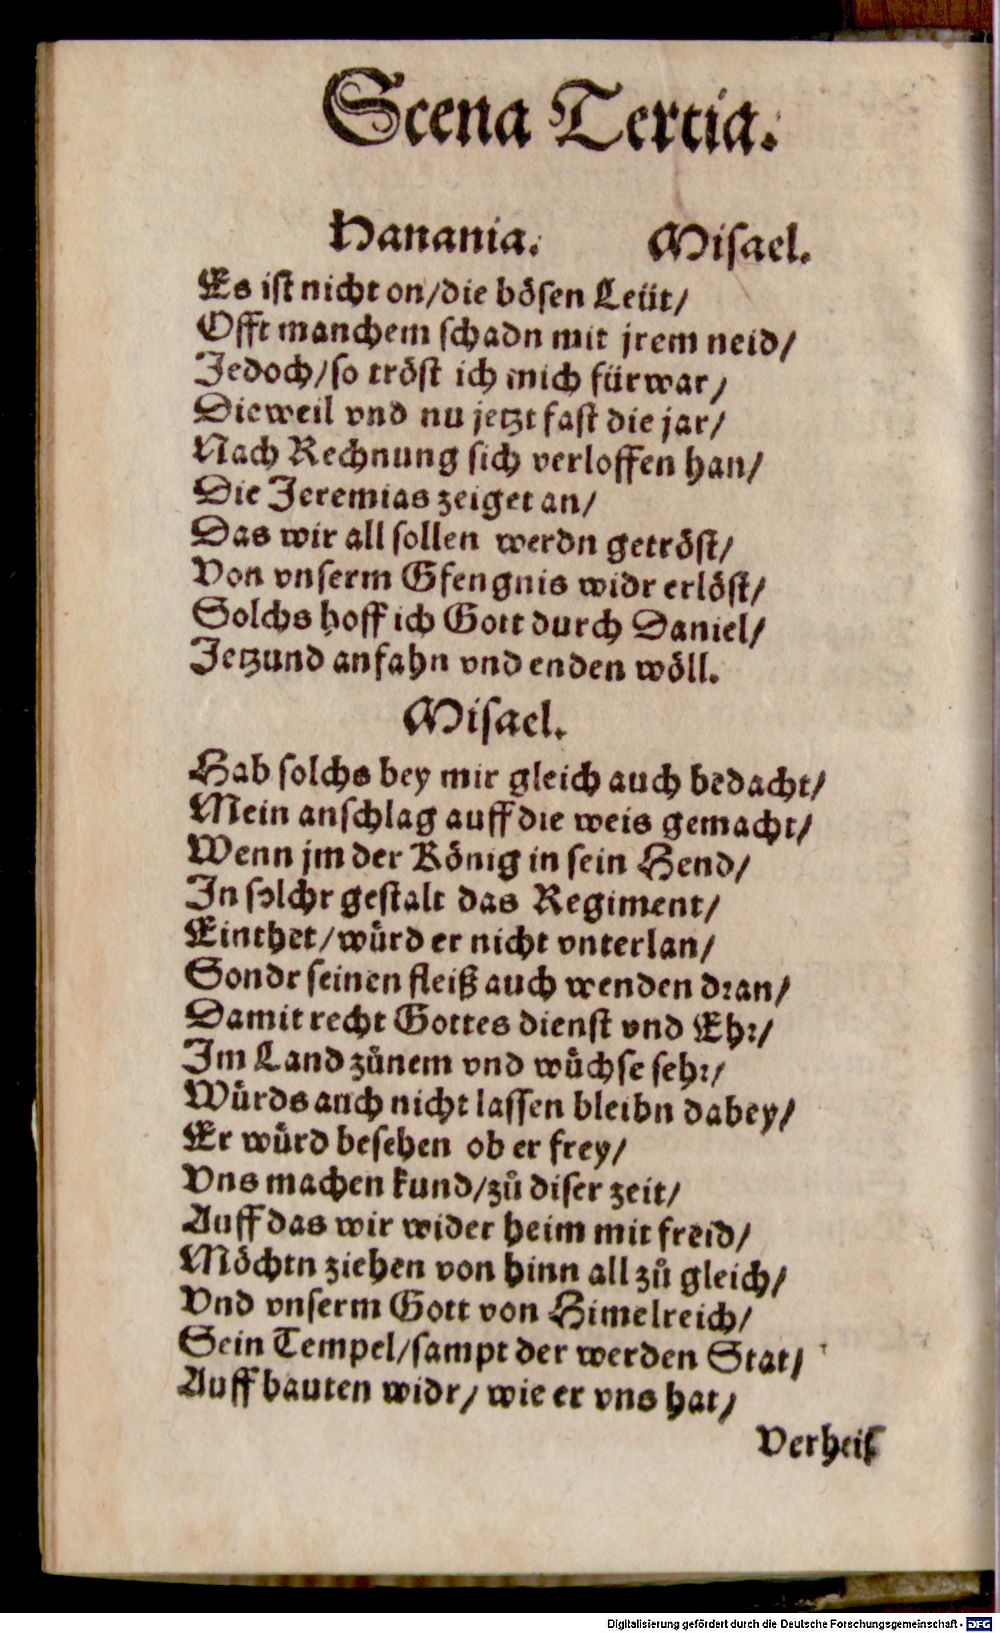 Scena Tertia.
Hanania. Misael.
Es ist nicht on/die bösen Leüt/
Offt manchem schadn mit jrem neid/
Jedoch/so tröst ich mich fürwar/
Dieweil vnd nu jetzt fast die jar/
Nach Rechnung sich verloffen han/
Die Jeremias zeiget an/
Das wir all sollen werdn getröst/
Von vnserm Gfengnis widr erlöst/
Solchs hoff ich Gott durch Daniel/
Jetzund anfahn vnd enden wöll.
Misael.
Hab solchs bey mir gleich auch bedacht/
Mein anschlag auff die weis gemacht/
Wenn jm der König in sein Hend/
In solchr gestalt das Regiment/
Einthet/würd er nicht vnterlan/
Sondr seinen fleiß auch wenden dran/
Damit recht Gottes dienst vnd Ehr/
Im Land zůnem vnd wůchse sehr/
Würds auch nicht lassen bleibn dabey/
Er würd besehen ob er frey/
Vns machen kund/zů diser zeit/
Auff das wir wider heim mit freid/
Möchtn ziehen von hinn all zů gleich/
Vnd vnserm Gott von Himelreich/
Sein Tempel/sampt der werden Stat/
Auff bauten widr/ wie er vns hat/
Verheis
Digitalisierung gefördert durch die Deutsche Forschungsgemeinschaft - DFG